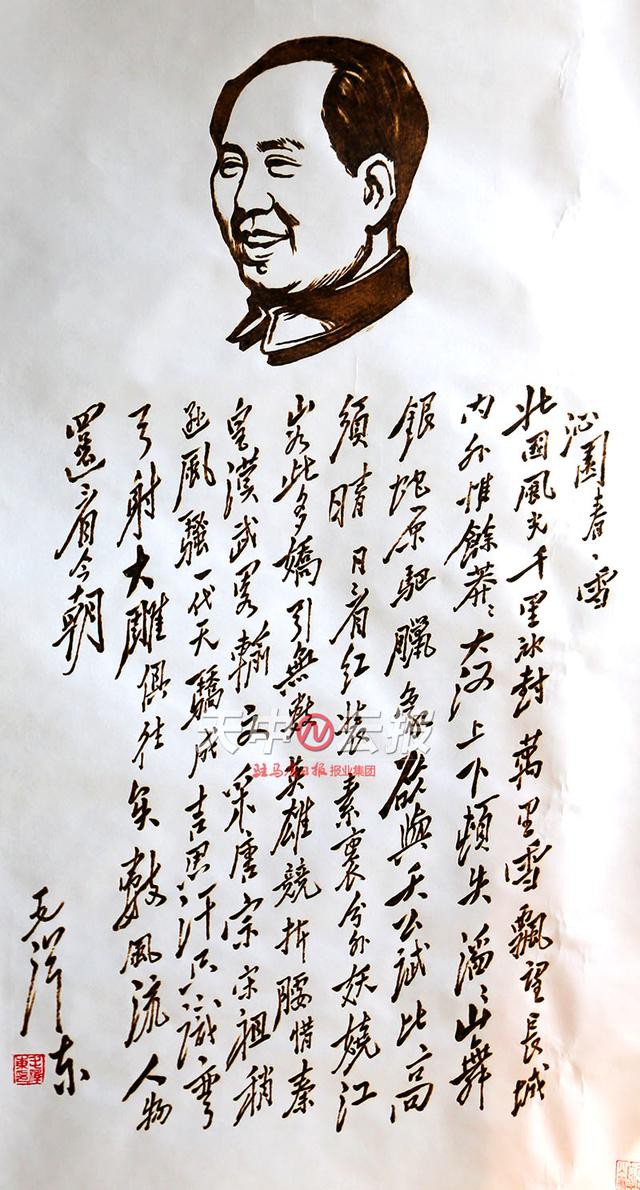 沁園春、雪
北国風光千里冰封萬里雪飄望長城
内外惟餘莽々大河上下頓失滔々山舞
銀蛇原馳臘象欲與天公試比高
須晴日看紅裝素裹分外妖嬈江
山如此多嬌引無數英雄競折腰惜秦
皇漢武略輸文采唐宗宋祖稍
遜風騷一代天驕成吉思汗只識彎
弓射大雕俱往矣數風流人物
還看今朝
毛泽东
天中云报
驻马店日报报业集团